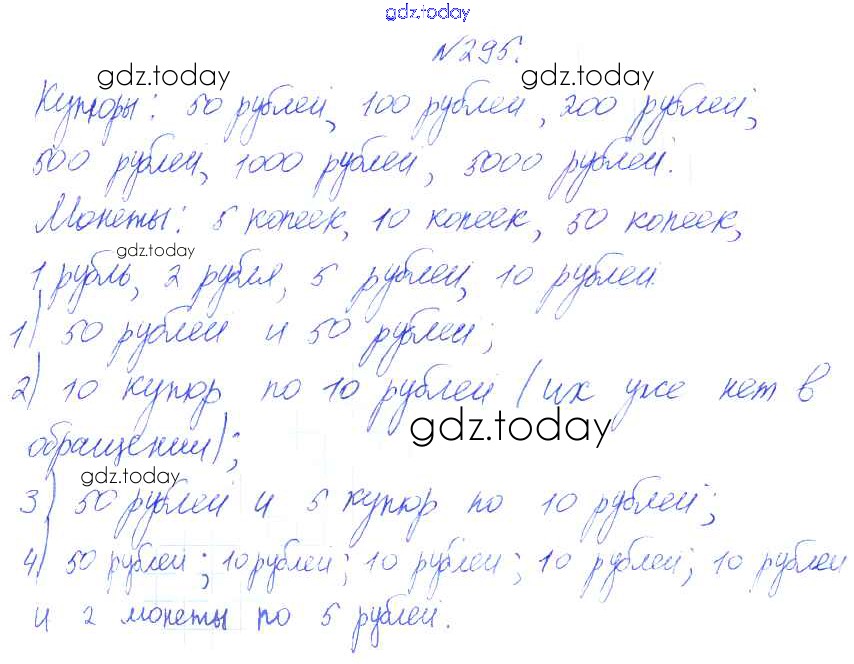 gdz.today
№295.
gdz.today gdz.today
Купюры: 50 рублей, 100 рублей, 200 рублей,
500 рублей, 1000 рублей, 5000 рублей.
Монеты: 5 копеек, 10 копеек, 50 копеек,
gdz.today
1 рубль, 2 рубля, 5 рублей, 10 рублей.
1) 50 рублей и 50 рублей;
2) 10 купюр по 10 рублей (их уже нет в
gdz.today
обращении);
gdz.today
3) 50 рублей и 5 купюр по 10 рублей;
4) 50 рублей; 10 рублей; 10 рублей; 10 рублей; 10 рублей
и 2 монеты по 5 рублей.